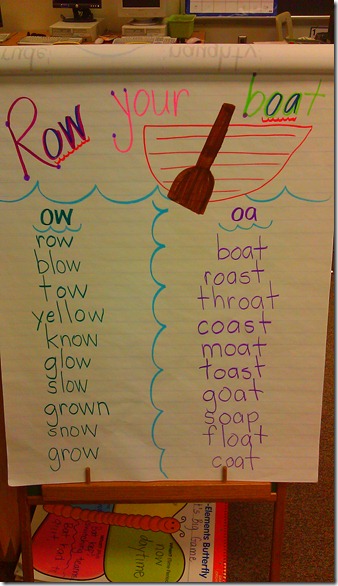 Row your boat
ow
row
blow
tow
yellow
know
glow
slow
grown
snow
grow
oa
boat
roast
throat
coast
moat
toast
goat
soap
float
coat
-Elements Butterfly
t's Big Game
now
daytime